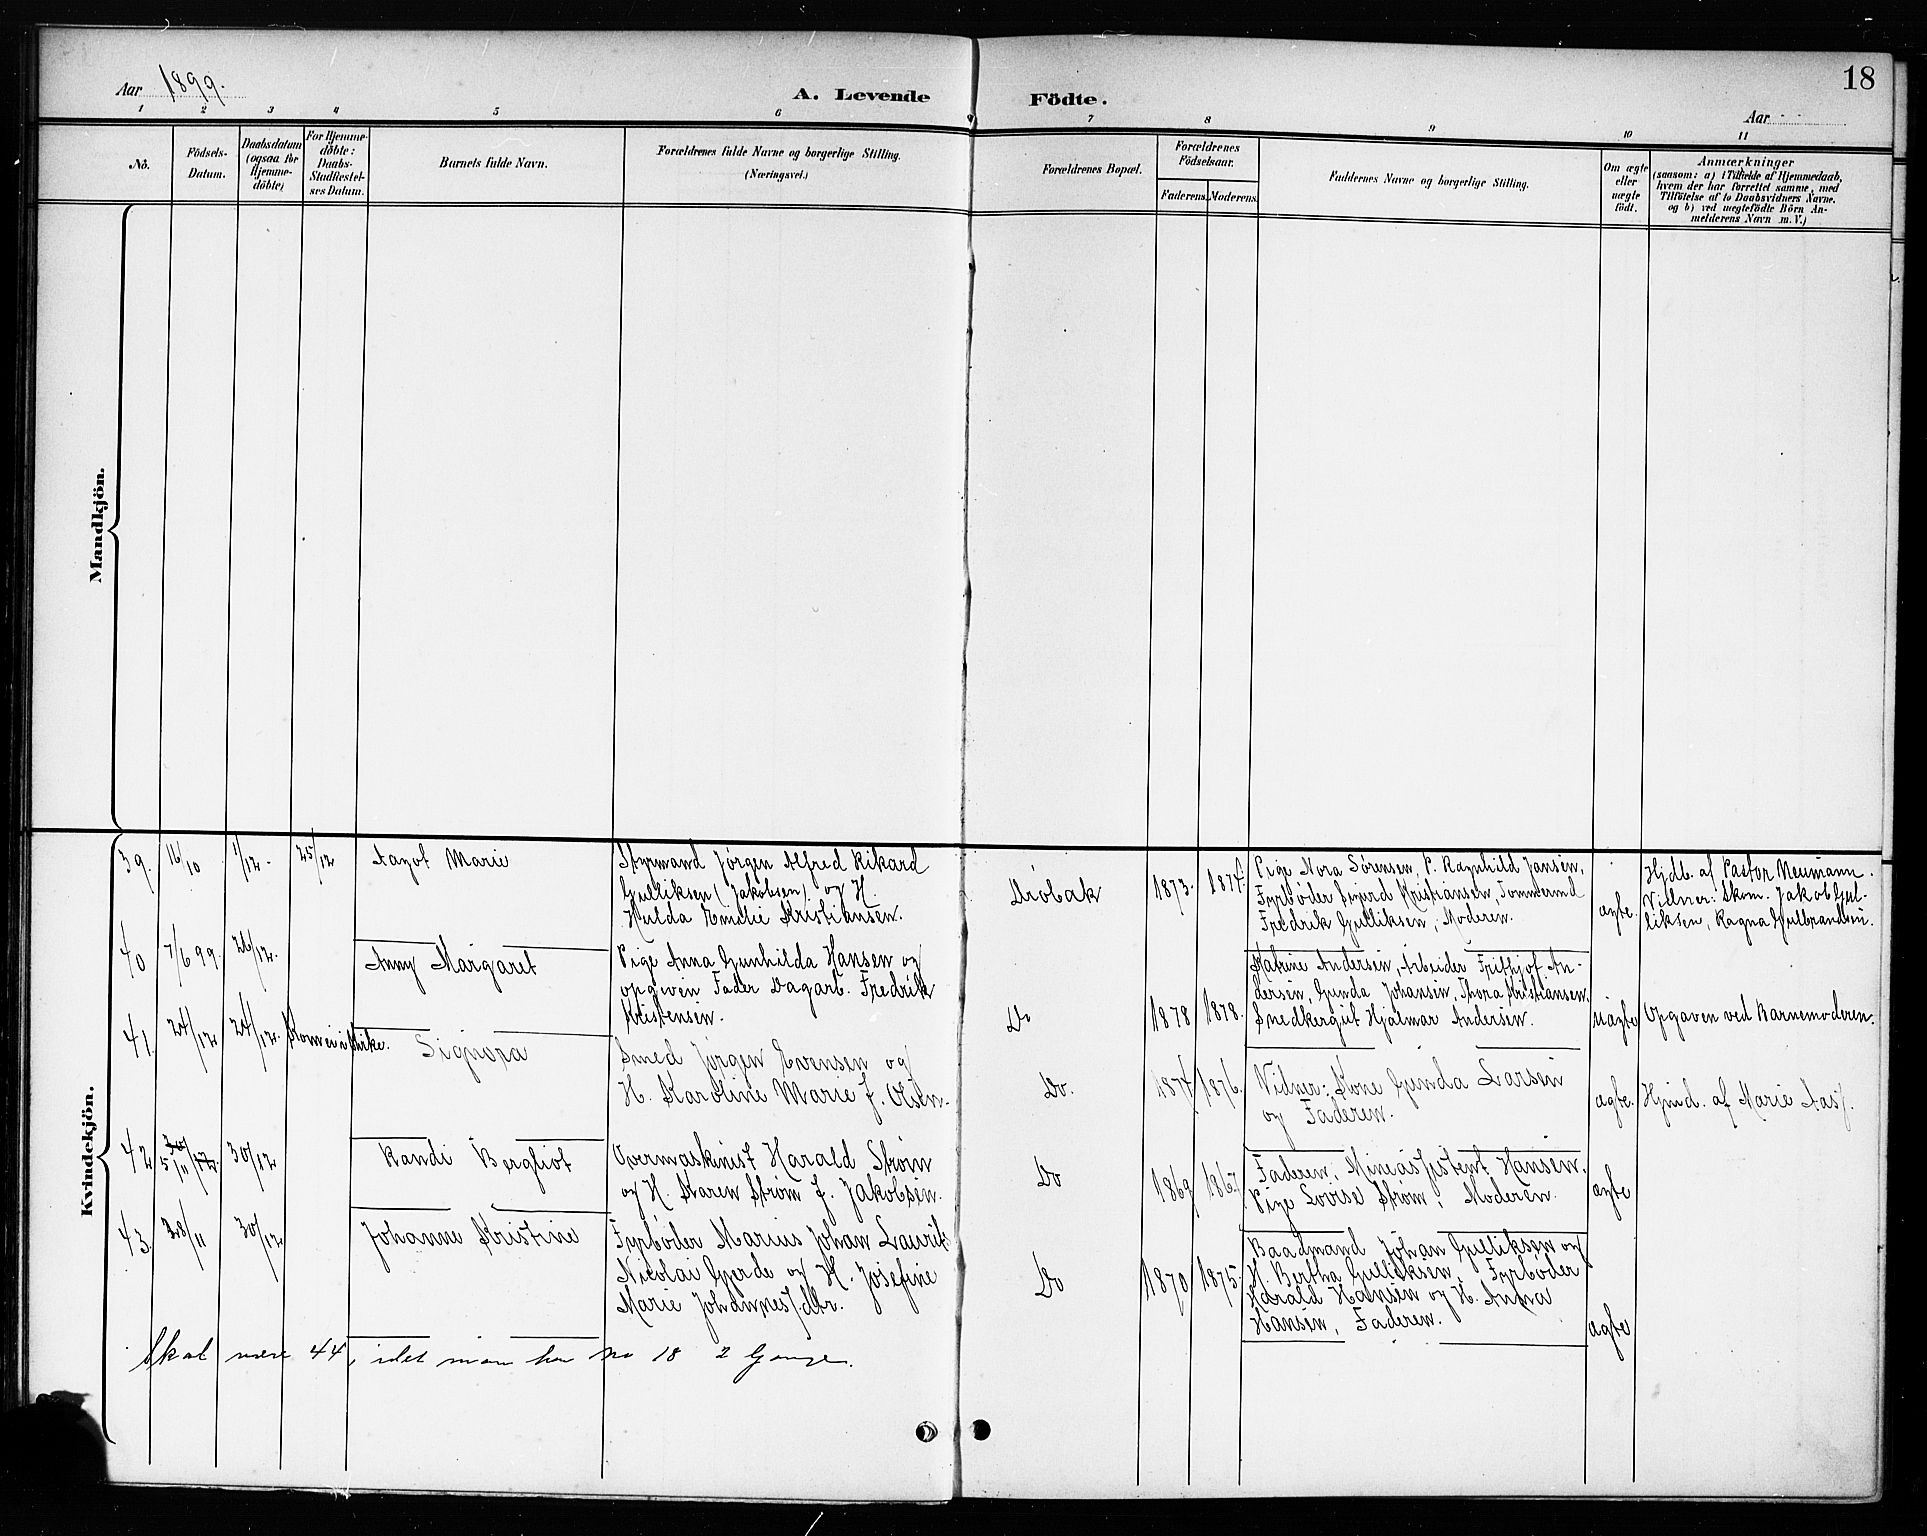 18
Aar 1899.
A. Levende Födte.
Aar
1 2 3 4 5 6 7 8 9 10 11
Nö.
Födsels-Datum.
Daabsdatum (ogsaa for Hjemmedöbte)
For Hjemmedöbte: Daabs-Stadfæstelses Datum.
Barnets fulde Navn.
Forældrenes fulde Navne og borgerlige Stilling.
(Næringsvei.)
Forældrenes Bopæl.
Forældrenes Födselsaar.
Faderens. Moderens.
Faddernes Navne og borgerlige Stilling.
Om ægte eller uægte födt.
Anmærkninger
(saasom: a) i Tilfælde af Hjemmedaab,
hvem der har forrettet samme, med
Tilföielse af to Daabsvidners Navne.
og b) ved uægtefödte Börn An-
melderens Navn m. V.)
Mandkjön.
Kvindekjön.
39. 16/10 1/12. 25/12 Aagot Marie
Styrmand Jørgen Alfred Rikard
Gulliksen (Jakobsen) og H.
Hulda Emilie Kristiansen.
Drøbak 1873. 1874.
Pige Nora Sørensen, P. Ragnhild Jansen,
Fyrbøder Sigurd Kristiansen, Tømmermd
Fredrik Gulliksen, Moderen.
ægte.
Hjdb. af Pastor Neumann.
Vidner: Skom. Jakob Gul-
liksen, Ragna Gulbrandsen.
40 7/6 99. 26/12. Anny Margaret
Pige Anna Gunhilda Hansen og
opgiven Fader Dagarb. Fredrik
Kristensen.
Do 1878 1878.
Katrine Andersen, Arbeider Frithjof An-
dersen, Gunda Johansen, Thora Kristiansen.
Snedkergut Hjalmar Andersen.
uægte
Opgaven ved Barnemoderen.
41. 24/12 24/12. Kom ei i Kirke. Signora
Smed Jørgen Evensen og
H. Karoline Marie f. Olsen.
Do. 1874 1876.
Vidner: Kone Gunda Larsen
og Faderen.
ægte.
Hjmd. af Marie Aas.
42 5/11 30/12 Randi Bergliot
Overmaskinist Harald Strøm
og H. Karen Strøm f. Jakobsen.
Do 1869 1867
Faderen, Mineassistent Hansen.
Pige Lovise Strøm, Moderen.
ægte
43. 28/11 30/12 Johanne Kristine
Fyrbøder Marius Johan Laurits
Nicolai Gjerde og H. Josefine
Marie Johannesdtr.
Do 1870 1875.
Baadmand Johan Gulliksen og
H. Bertha Gulliksen, Fyrbøder
Harald Hansen og H. Anna
Hansen, Faderen.
ægte
Skal være 44, idet man har no 18 2 Gange.